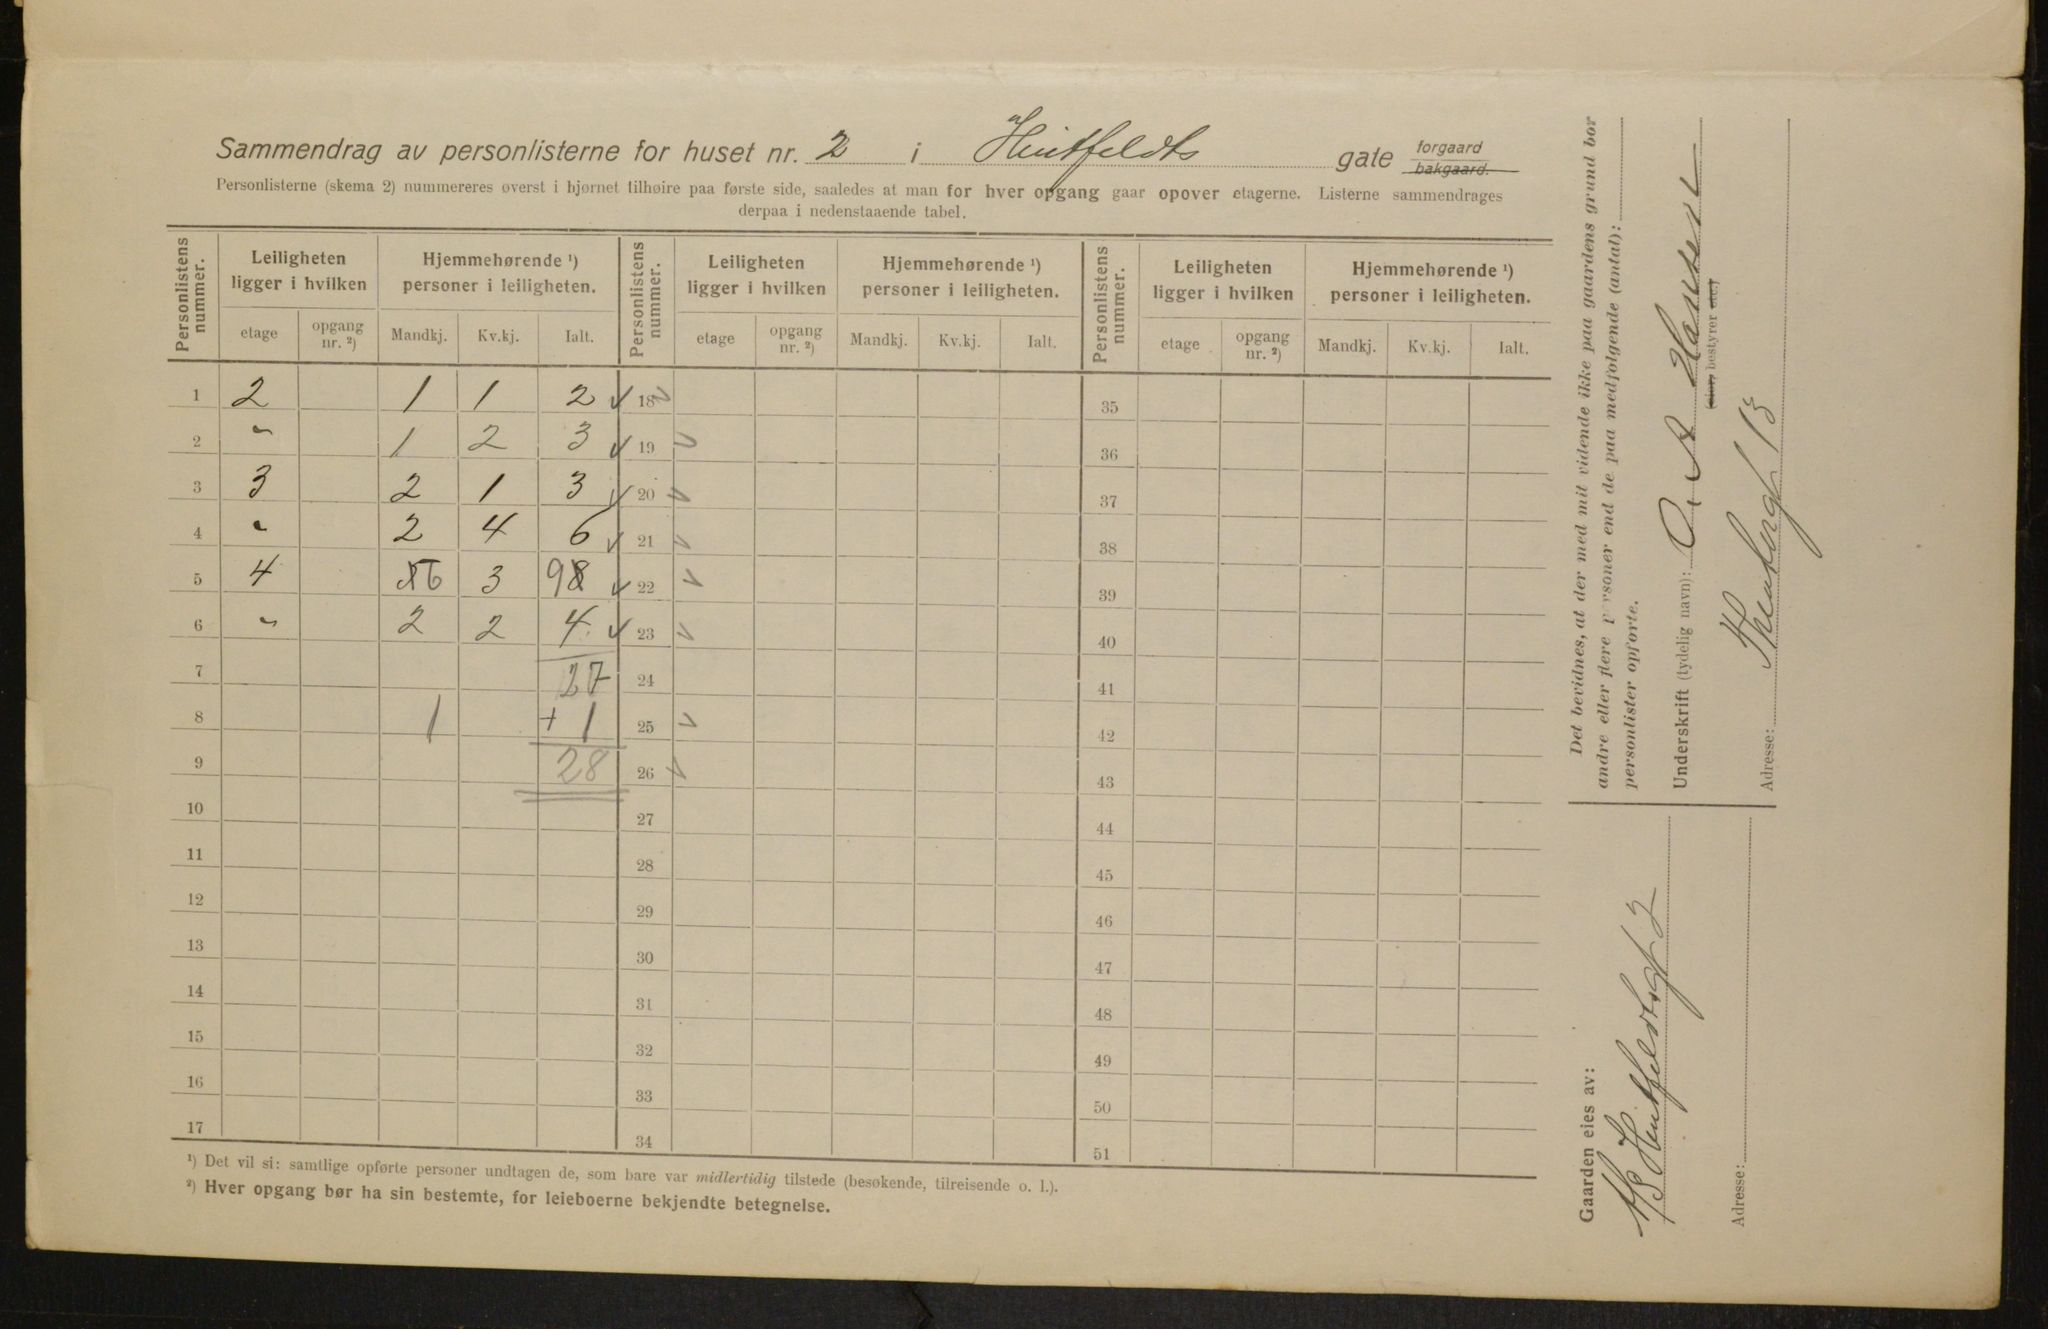 Sammendrag av personlisterne for huset nr. 2 i Huitfeldts gate forgaard bakgaard.
Personlisterne (skema 2) nummereres øverst i hjørnet tilhøire paa første side, saaledes at man for hver opgang gaar opover etagerne. Listerne sammendrages
derpaa i nedenstaaende tabel.
Personlistens nummer. Leiligheten ligger i hvilken Hjemmehørende ¹) personer i leiligheten. Personlistens nummer. Leiligheten ligger i hvilken Hjemmehørende ¹) personer i leiligheten. Personlistens nummer. Leiligheten ligger i hvilken Hjemmehørende ¹) personer i leiligheten.
etage opgang nr. ²) Mandkj. Kv.kj. Ialt. etage opgang nr. ²) Mandkj. Kv.kj. Ialt. etage opgang nr. ²) Mandkj. Kv.kj. Ialt.
1 2 1 1 2 ✓ 18 ✓ 35
2 " 1 2 3 ✓ 19 ✓ 36
3 3 2 1 3 ✓ 20 ✓ 37
4 " 2 4 6 ✓ 21 ✓ 38
5 4 6 3 9 8 ✓ 22 ✓ 39
6 " 2 2 4 ✓ 23 ✓ 40
7 27 24 41
8 1 + 1 25 ✓ 42
9 28 26 ✓ 43
10 27 44
11 28 45
12 29 46
13 30 47
14 31 48
15 32 49
16 33 50
17 34 51
¹) Det vil si: samtlige opførte personer undtagen de, som bare var midlertidig tilstede (besøkende, tilreisende o. l.).
²) Hver opgang bør ha sin bestemte, for leieboerne bekjendte betegnelse.
Det bevidnes, at der med mit vidende ikke paa gaardens grund bor
andre eller flere personer end de paa medfølgende (antal):
personlister opførte.
Underskrift (tydelig navn): Hansen
(eier, bestyrer etc.)
Adresse: 13
Gaarden eies av:
A/S Huitfeldtsgt 2
Adresse: